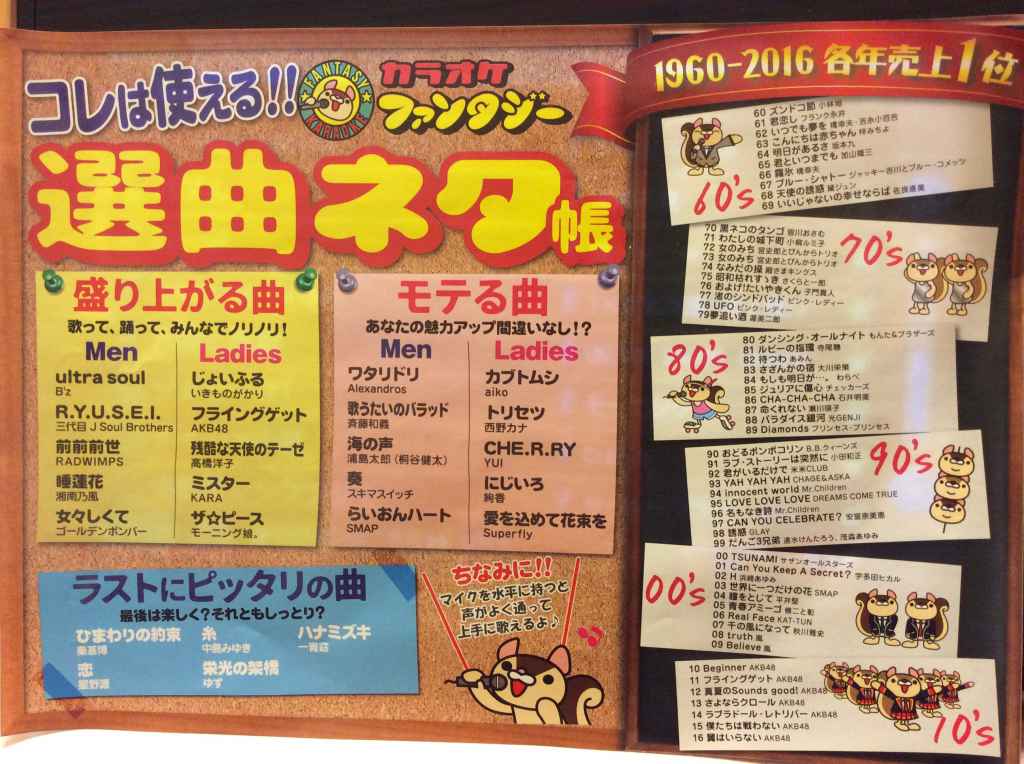 コレは使える!!
FANTASY KARAOKE
カラオケ
ファンタジー
選曲ネタ帳
盛り上がる曲
歌って、踊って、みんなでノリノリ!
Men
ultra soul
B'z
R.Y.U.S.E.I.
三代目 J Soul Brothers
前前前世
RADWIMPS
睡蓮花
湘南乃風
女々しくて
ゴールデンボンバー
Ladies
じょいふる
いきものがかり
フライングゲット
AKB48
残酷な天使のテーゼ
高橋洋子
ミスター
KARA
ザ☆ピース
モーニング娘。
モテる曲
あなたの魅力アップ間違いなし!?
Men
ワタリドリ
Alexandros
歌うたいのバラッド
斉藤和義
海の声
浦島太郎(桐谷健太)
奏
スキマスイッチ
らいおんハート
SMAP
Ladies
カブトムシ
aiko
トリセツ
西野カナ
CHE.R.RY
YUI
にじいろ
絢香
愛を込めて花束を
Superfly
ラストにピッタリの曲
最後は楽しく?それともしっとり?
ひまわりの約束
秦基博
糸
中島みゆき
ハナミズキ
一青窈
恋
星野源
栄光の架橋
ゆず
ちなみに!!
マイクを水平に持つと
声がよく通って
上手に歌えるよ♪
1960-2016 各年売上1位
60's
60 ズンドコ節 小林旭
61 君恋し フランク永井
62 いつでも夢を 橋幸夫・吉永小百合
63 こんにちは赤ちゃん 梓みちよ
64 明日があるさ 坂本九
65 君といつまでも 加山雄三
66 霧氷 橋幸夫
67 ブルー・シャトー ジャッキー吉川とブルー・コメッツ
68 天使の誘惑 黛ジュン
69 いいじゃないの幸せならば 佐良直美
70's
70 黒ネコのタンゴ 皆川おさむ
71 わたしの城下町 小柳ルミ子
72 女のみち 宮史郎とぴんからトリオ
73 女のみち 宮史郎とぴんからトリオ
74 なみだの操 殿さまキングス
75 昭和枯れすゝき さくらと一郎
76 およげ!たいやきくん 子門真人
77 渚のシンドバッド ピンク・レディー
78 UFO ピンク・レディー
79 夢追い酒 渥美二郎
80's
80 ダンシング・オールナイト もんた&ブラザーズ
81 ルビーの指環 寺尾聰
82 待つわ あみん
83 さざんかの宿 大川栄策
84 もしも明日が…。 わらべ
85 ジュリアに傷心 チェッカーズ
86 CHA-CHA-CHA 石井明美
87 命くれない 瀬川瑛子
88 パラダイス銀河 光GENJI
89 Diamonds プリンセス・プリンセス
90's
90 おどるポンポコリン B.B.クィーンズ
91 ラブ・ストーリーは突然に 小田和正
92 君がいるだけで 米米CLUB
93 YAH YAH YAH CHAGE&ASKA
94 innocent world Mr.Children
95 LOVE LOVE LOVE DREAMS COME TRUE
96 名もなき詩 Mr.Children
97 CAN YOU CELEBRATE? 安室奈美恵
98 誘惑 GLAY
99 だんご3兄弟 速水けんたろう、茂森あゆみ
00's
00 TSUNAMI サザンオールスターズ
01 Can You Keep A Secret? 宇多田ヒカル
02 H 浜崎あゆみ
03 世界に一つだけの花 SMAP
04 瞳をとじて 平井堅
05 青春アミーゴ 修二と彰
06 Real Face KAT-TUN
07 千の風になって 秋川雅史
08 truth 嵐
09 Believe 嵐
10's
10 Beginner AKB48
11 フライングゲット AKB48
12 真夏のSounds good! AKB48
13 さよならクロール AKB48
14 ラブラドール・レトリバー AKB48
15 僕たちは戦わない AKB48
16 翼はいらない AKB48